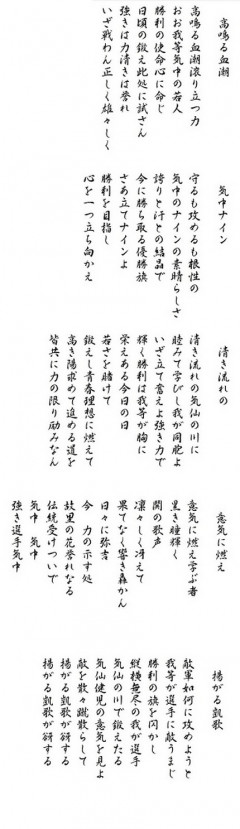 高鳴る血潮
高鳴る血潮滾り立つ力
おお我等気中の若人
勝利の使命心に命じ
日頃の鍛え此処に試さん
強きは力清きは誉れ
いざ戦わん正しく雄々しく
気中ナイン
守るも攻めるも根性の
気中のナインの素晴らしさ
誇りと汗との結晶で
今に勝ち取る優勝旗
さあ立てナインよ
勝利を目指し
心を一つ立ち向かえ
清き流れの
清き流れの気仙の川に
睦みて学びし我が同胞よ
いざ立て奮えよ強き力で
輝く勝利は我等が胸に
栄えある今日の日
若さを賭けて
鍛えし青春理想に燃えて
高き陽求めて進める道を
皆共に力の限り励みなん
意気に燃え
意気に燃え学ぶ者
黒き瞳輝く
関の歌声
凜々しく冴えて
果てなく響き轟かん
日々に弥吉
今 力の示す処
故里の花誉れなる
伝統受けついで
気中 気中
強き選手気中
揚がる凱歌
敵軍如何に攻めようと
我等が選手に敵うまじ
勝利の旗を閃かし
縦横無尽の我が選手
気仙の川で鍛えたる
気仙健児の意気を見よ
敵を散々蹴散らして
揚がる凱歌が谺する
揚がる凱歌が谺する